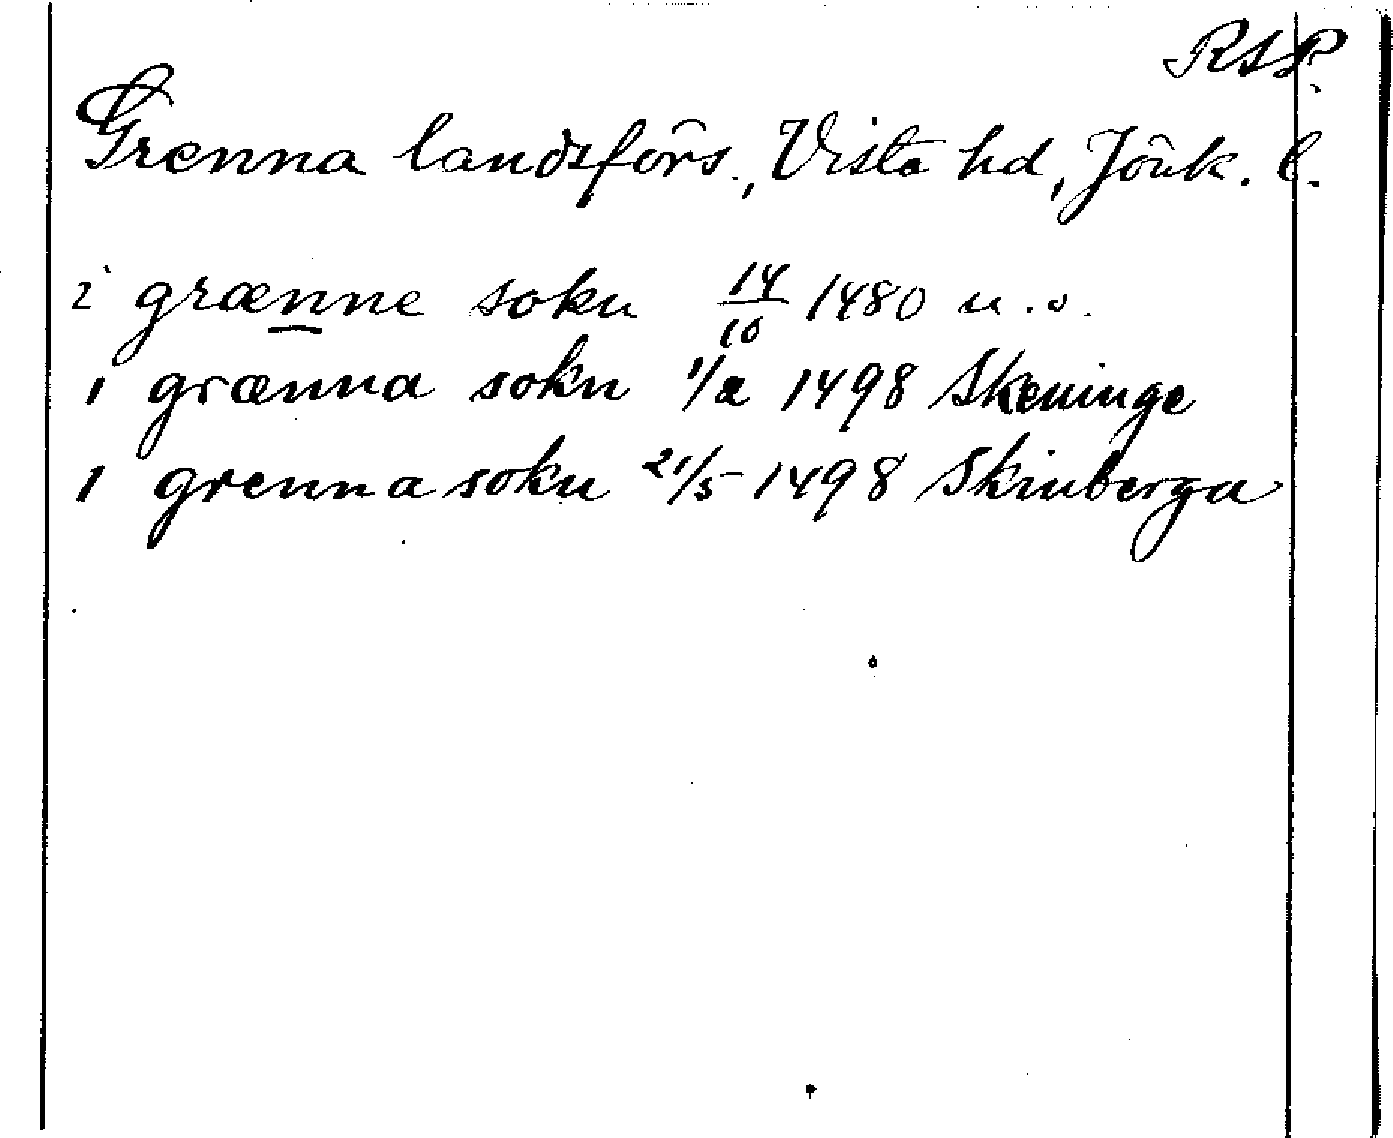 RAP.
Grenna landsförs., Vista hd, Jönk. l.
i grænne sokn 14/10 1480 u.o.
i grænna sokn 1/2 1498 Skeninge
i grenna sokn 21/5 1498 Skinberga